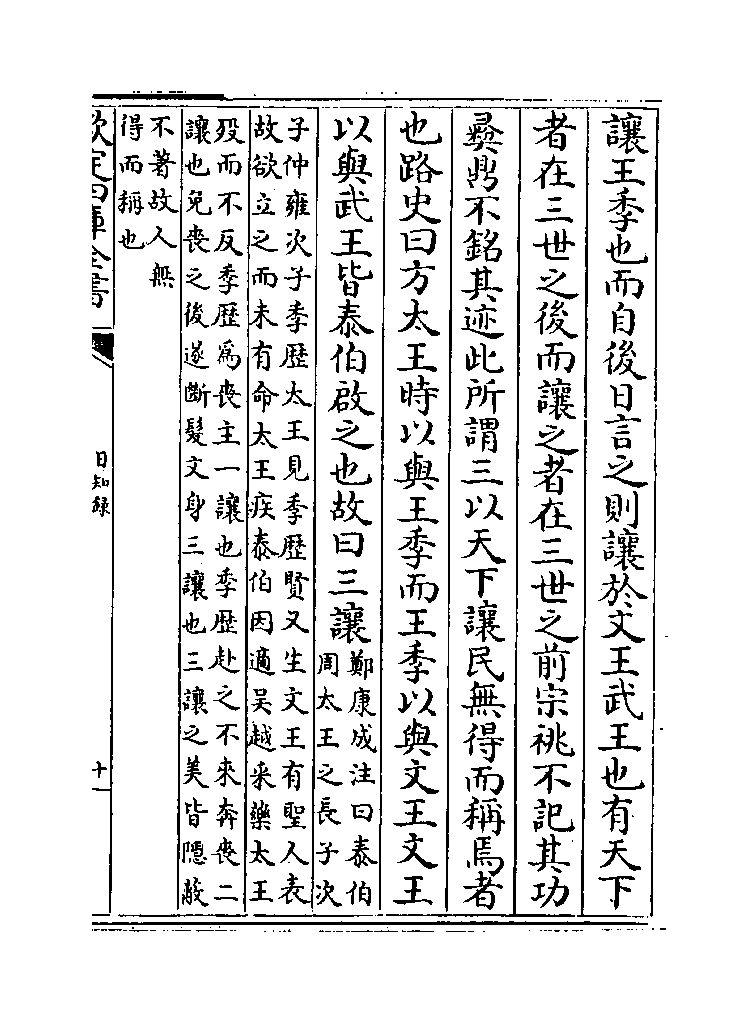 讓王季也而自後日言之則讓於文王武王也有天下
者在三世之後而讓之者在三世之前宗祧不記其功
彛鼎不銘其迹此所謂三以天下讓民無得而稱焉者
也路史曰方太王時以與王季而王季以與文王文王
以與武王皆泰伯啟之也故曰三讓
鄭康成注曰泰伯
周太王之長子次
子仲雍次子季歴太王見季歴賢又生文王有聖人表
故欲立之而未有命太王疾泰伯因適吳越采藥太王
歿而不反季歴為喪主一讓也季歴赴之不來奔喪二
讓也免喪之後遂斷髮文身三讓也三讓之美皆隱蔽
不著故人無
得而稱也
欽定四庫全書
日知録
十一